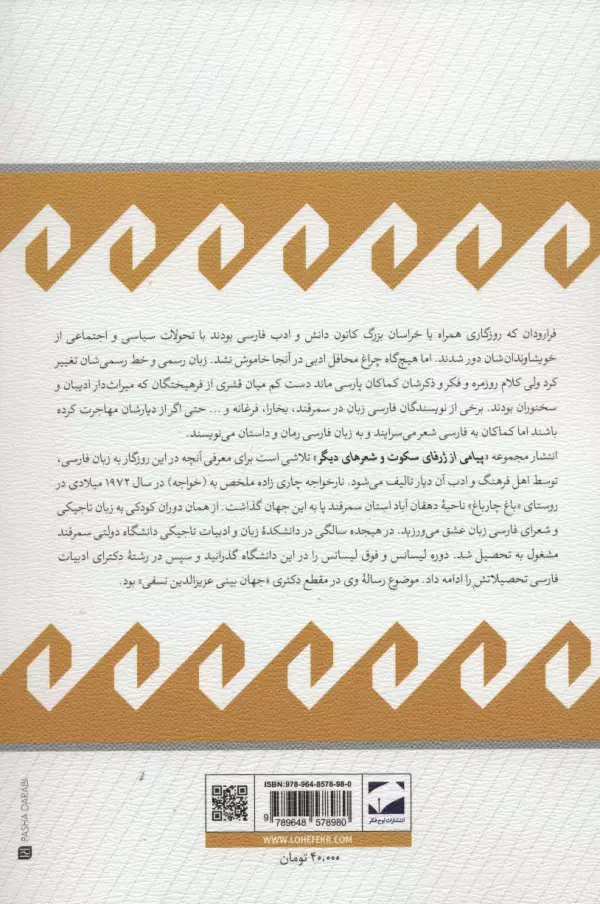 فرارودان که روزگاری همراه با خراسان بزرگ کانون دانش و ادب فارسی بودند با تحولات سیاسی و اجتماعی از
خویشاوندان‌شان دور شدند. اما هیچ‌گاه چراغ محافل ادبی در آنجا خاموش نشد. زبان رسمی و خط رسمی‌شان تغییر
کرد ولی کلام روزمره و فکر و ذکرشان کماکان پارسی ماند دست کم میان قشری از فرهیختگان که میراث‌دار ادیبان و
سخنوران بودند. برخی از نویسندگان فارسی زبان در سمرقند، بخارا، فرغانه و ... حتی اگر از دیارشان مهاجرت کرده
باشند اما کماکان به فارسی شعر می‌سرایند و به زبان فارسی رمان و داستان می‌نویسند.
انتشار مجموعه «پیامی از ژرفای سکوت و شعرهای دیگر» تلاشی است برای معرفی آنچه در این روزگار به زبان فارسی،
توسط اهل فرهنگ و ادب آن دیار تالیف می‌شود. نارخواجه چاری زاده ملخص به (خواجه) در سال ۱۹۷۲ میلادی در
روستای «باغ چارباغ» ناحیهٔ دهقان آباد استان سمرقند پا به این جهان گذاشت. از همان دوران کودکی به زبان تاجیکی
و شعرای فارسی زبان عشق می‌ورزید. در هیجده سالگی در دانشکدهٔ زبان و ادبیات تاجیکی دانشگاه دولتی سمرقند
مشغول به تحصیل شد. دوره لیسانس و فوق لیسانس را در این دانشگاه گذرانید و سپس در رشتهٔ دکترای ادبیات
فارسی تحصیلاتش را ادامه داد. موضوع رسالهٔ وی در مقطع دکتری «جهان بینی عزیزالدین نسفی» بود.
ISBN: 978-964-8578-98-0
9 789648 578980
انتشارات لوح فکر
WWW.LOHEFEKR.COM
۴۰,۰۰۰ تومان
PASHA DARABI